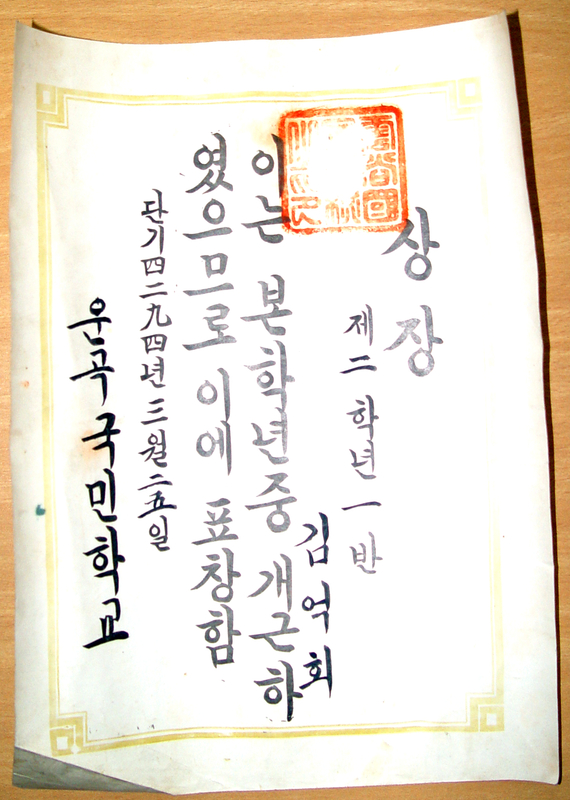 상장
제二학년一반
김억회
이는 본학년중 개근하
였으므로 이에 표창함
단기四二九四년三월二五일
운곡국민학교